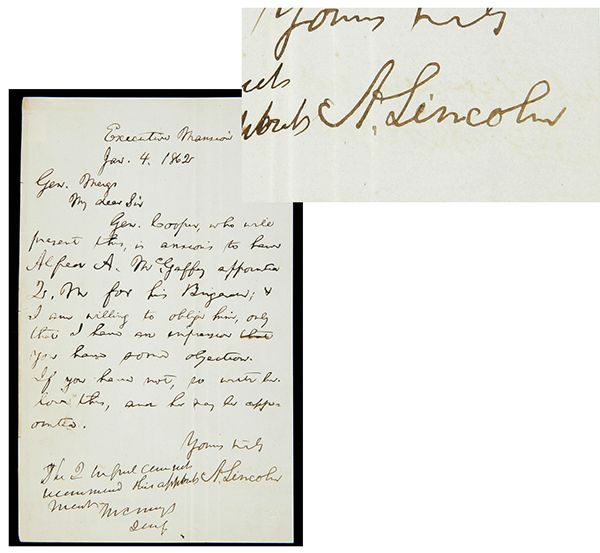 Executive Mansion
Jan. 4. 1862
Gen. Meigs
My dear Sir
Gen. Cooper, who will
present this, is anxious to have
Alfred A. McGaffey appointed
Q. M for his Brigade; &
I am willing to oblige him, only
that I have an impression that
you have some objection.
If you have not, so write be-
low this, and he may be appo-
inted.
Yours truly
A. Lincoln
The Q
recommend this appoint
ment
Yours truly
A. Lincoln